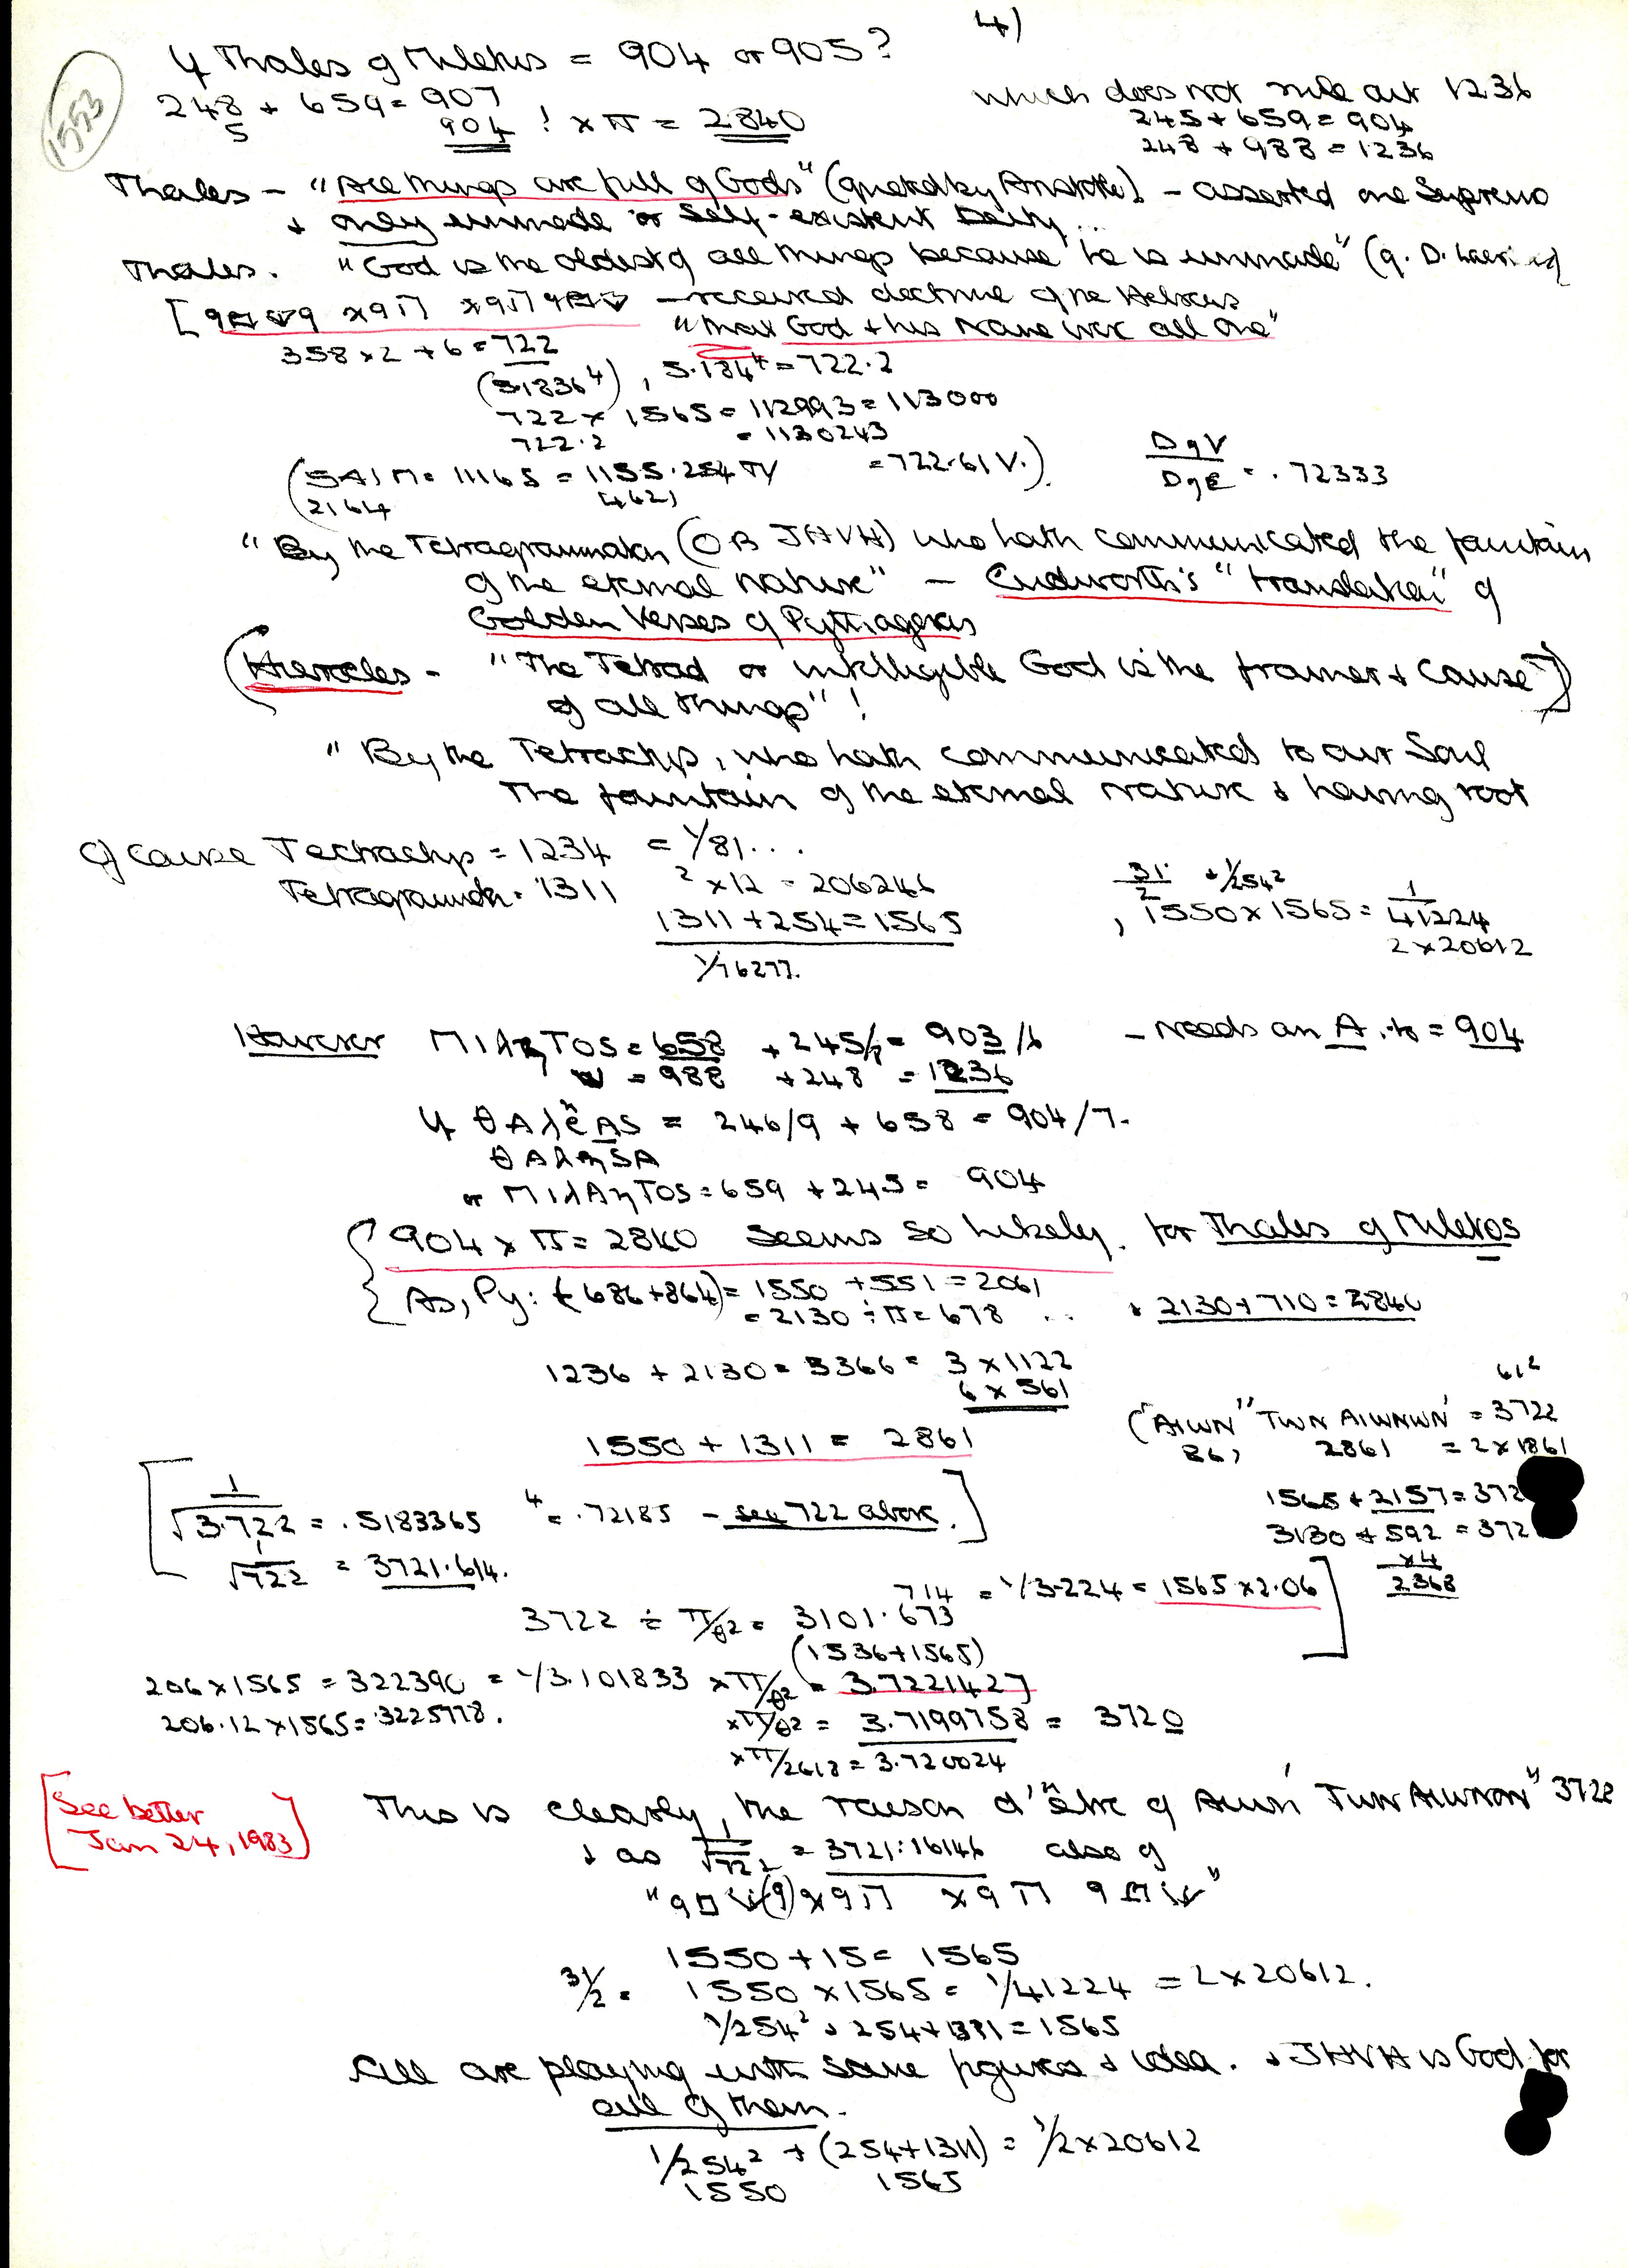 4)
1553
If Thales of Miletus = 904 or 905?
248 + 659 = 907
5 904 ! x π = 2840
which does not rule out 1236
245 + 659 = 904
248 + 988 = 1236
Thales - "All things are full of Gods" (quoted by Aristotle) - asserted one Supreme
+ only unmade or Self-existent Deity...
Thales. "God is the oldest of all things because he is unmade" (q. D.
- received doctrine of the Hebrews
"that God + his Name were all one"
358 x 2 + 6 = 722
(5.1836⁴), 5.184⁴ = 722.2
722 x 1565 = 112993 = 113000
722.2 = 1130243
= 722.61 V.)
2164 (462)
D of V / D of E = .72333
"By the Tetragrammaton (OR JHVH) who hath communicated the fountain
of the eternal nature" - Cudworth's "translation" of
Golden Verses of Pythagoras
(Hierocles - "The Tetrad or intelligible God is the framer + cause
of all things"!
"By the Tetractys, who hath communicated to our Soul
The fountain of the eternal nature & having root
of cause Tectractys = 1234 = 1/81...
Tetragramm = 1311 ² x 12 = 206246
1311 + 254 = 1565
1/76277.
31/2 + 1/254²
, 1550 x 1565 = 1/41224
2 x 20612
However ΜΙΛηΤΟS = 658 + 245/7 = 903/6 - needs an A. to = 904
w = 988 + 248 = 1236
If θΑλëAS = 246/9 + 658 = 904/7.
θΑληSA
or ΜΙλΑηΤΟS = 659 + 245 = 904
904 x π = 2840 seems so likely. for Thales of Miletos
As, Py: (686+864) = 1550 + 551 = 2061
= 2130 ÷ π = 678 .. + 2130 + 710 = 2840
1236 + 2130 = 3366 = 3 x 1122
6 x 561
61²
("AIWN" TWN AIWNWN' = 3722
861 2861 = 2 x 1861
1550 + 1311 = 2861
1565 + 2157 = 372
3130 + 592 = 372
x4
2368
1/√3.722 = .5183365 ⁴ = .72185 - see 722 above.
1/√722 = 3721.614.
714 = 1/3.224 = 1565 x 2.06
3722 ÷ π/θ2 = 3101.673
(1536+1565)
206 x 1565 = 322390 = 1/3.101833 x π/θ2 = 3.7221427
206.12 x 1565 = 3225778. xπ/θ2 = 3.7199758 = 3720
xπ/2618 = 3.720024
[See better
Jan 24, 1983]
This is clearly, the raison d'être of AIWN TWN AIWNWN" 3722
+ as 1/√722 = 3721.16146 also of
1550 + 15 = 1565
31/2 = 1550 x 1565 = 1/41224 = 2 x 20612.
1/254² + 254 + 1311 = 1565
All are playing with same figures + idea. + JHVH is God for
all of them.
1/254² + (254+1311) = 1/2 x 20612
1550 1565